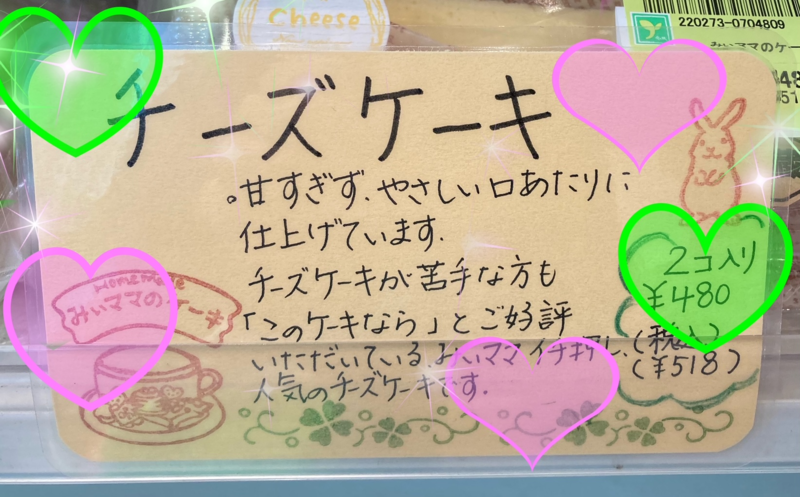 Cheese
220273-0704809
みぃママのケー
チーズケーキ
。甘すぎず、やさしい口あたりに
仕上げています.
チーズケーキが苦手な方も
「このケーキなら」とご好評
いただいている みぃママイチ押し、
人気のチーズケーキです.
2コ入り
¥480
(税込)
(¥518)
Homemade
みぃママのケーキ